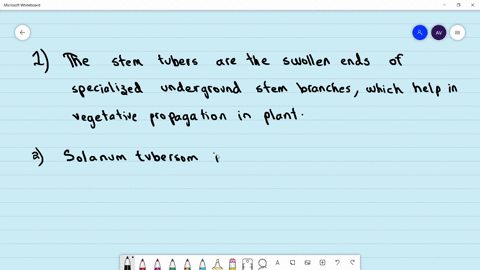 Microsoft Whiteboard
AV
1) The stem tubers are the swollen ends of
specialized underground stem branches, which help in
vegetative propagation in plant.
2) Solanum tubersom i